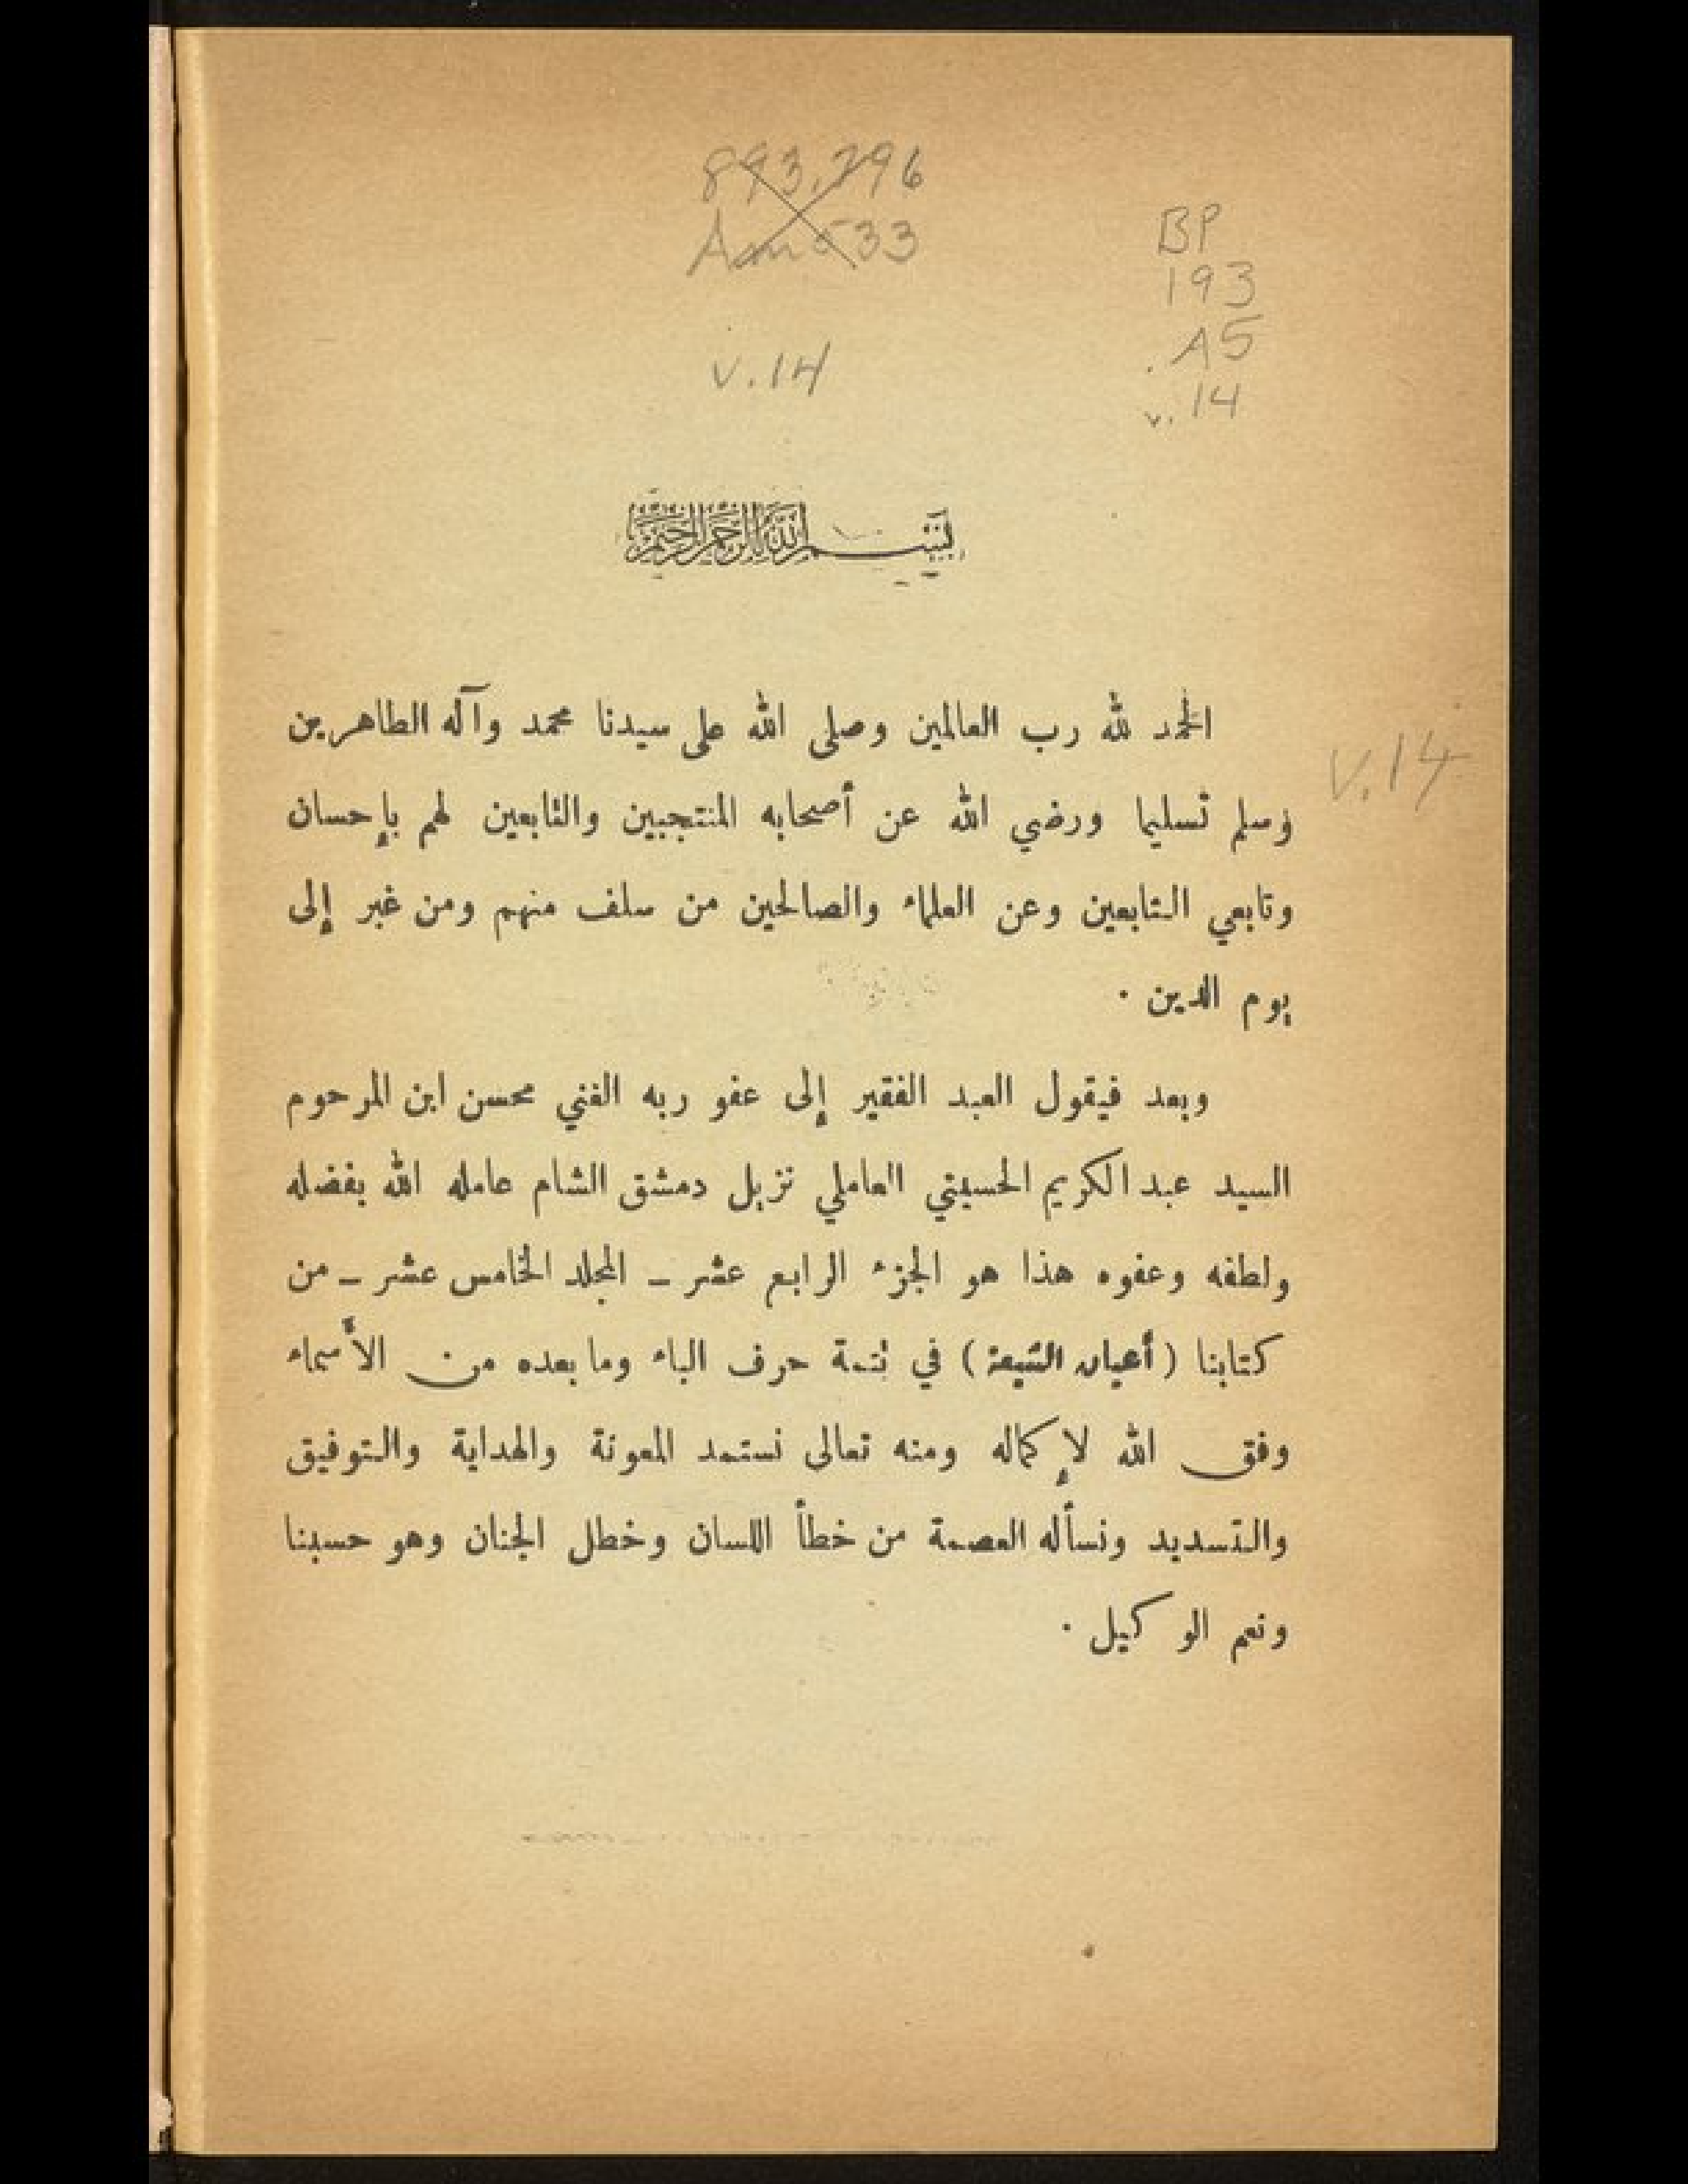 893.796
Am533
BP
193
.A5
v.14
v.14
بسم الله الرحمن الرحيم
الحمد لله رب العالمين وصلى الله على سيدنا محمد وآله الطاهرين
v.14
وسلم تسليما ورضي الله عن أصحابه المنتجبين والتابعين لهم بإحسان
وتابعي التابعين وعن العلماء والصالحين من سلف منهم ومن غبر إلى
يوم الدين ·
وبعد فيقول العبد الفقير إلى عفو ربه الغني محسن ابن المرحوم
السيد عبد الكريم الحسيني العاملي نزيل دمشق الشام عامله الله بفضله
ولطفه وعفوه هذا هو الجزء الرابع عشر – المجلد الخامس عشر – من
كتابنا ( أعيان الشيعة ) في تتمة حرف الباء وما بعده من الأسماء
وفق الله لإكماله ومنه تعالى نستمد المعونة والهداية والتوفيق
والتسديد ونسأله العصمة من خطأ اللسان وخطل الجنان وهو حسبنا
ونعم الوكيل ·